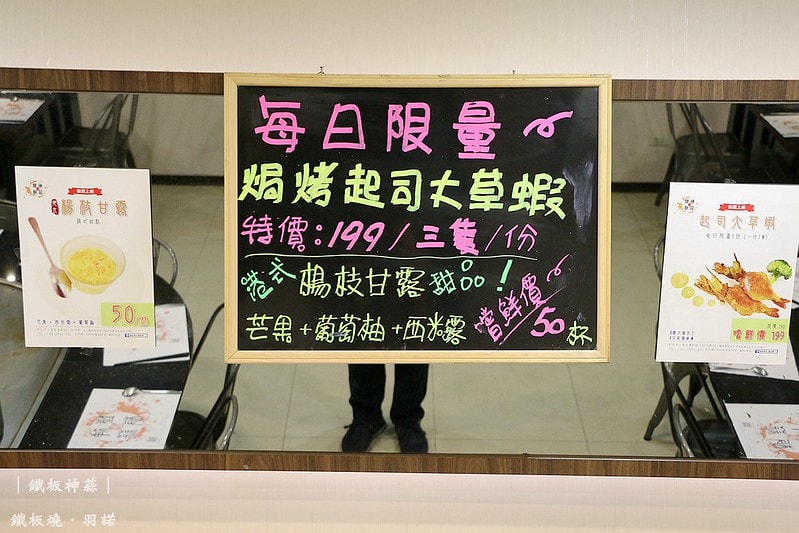 每日限量
焗烤起司大草蝦
特價:199/三隻/份
港式楊枝甘露甜品!
芒果+葡萄柚+西米露
嘗鮮價50杯
新品上市
楊枝甘露
港式甜點
芒果+西米露+葡萄柚
50
新品上市
起司大草蝦
嚐鮮價 199
|鐵板神蒜|
鐵板燒·羽諾